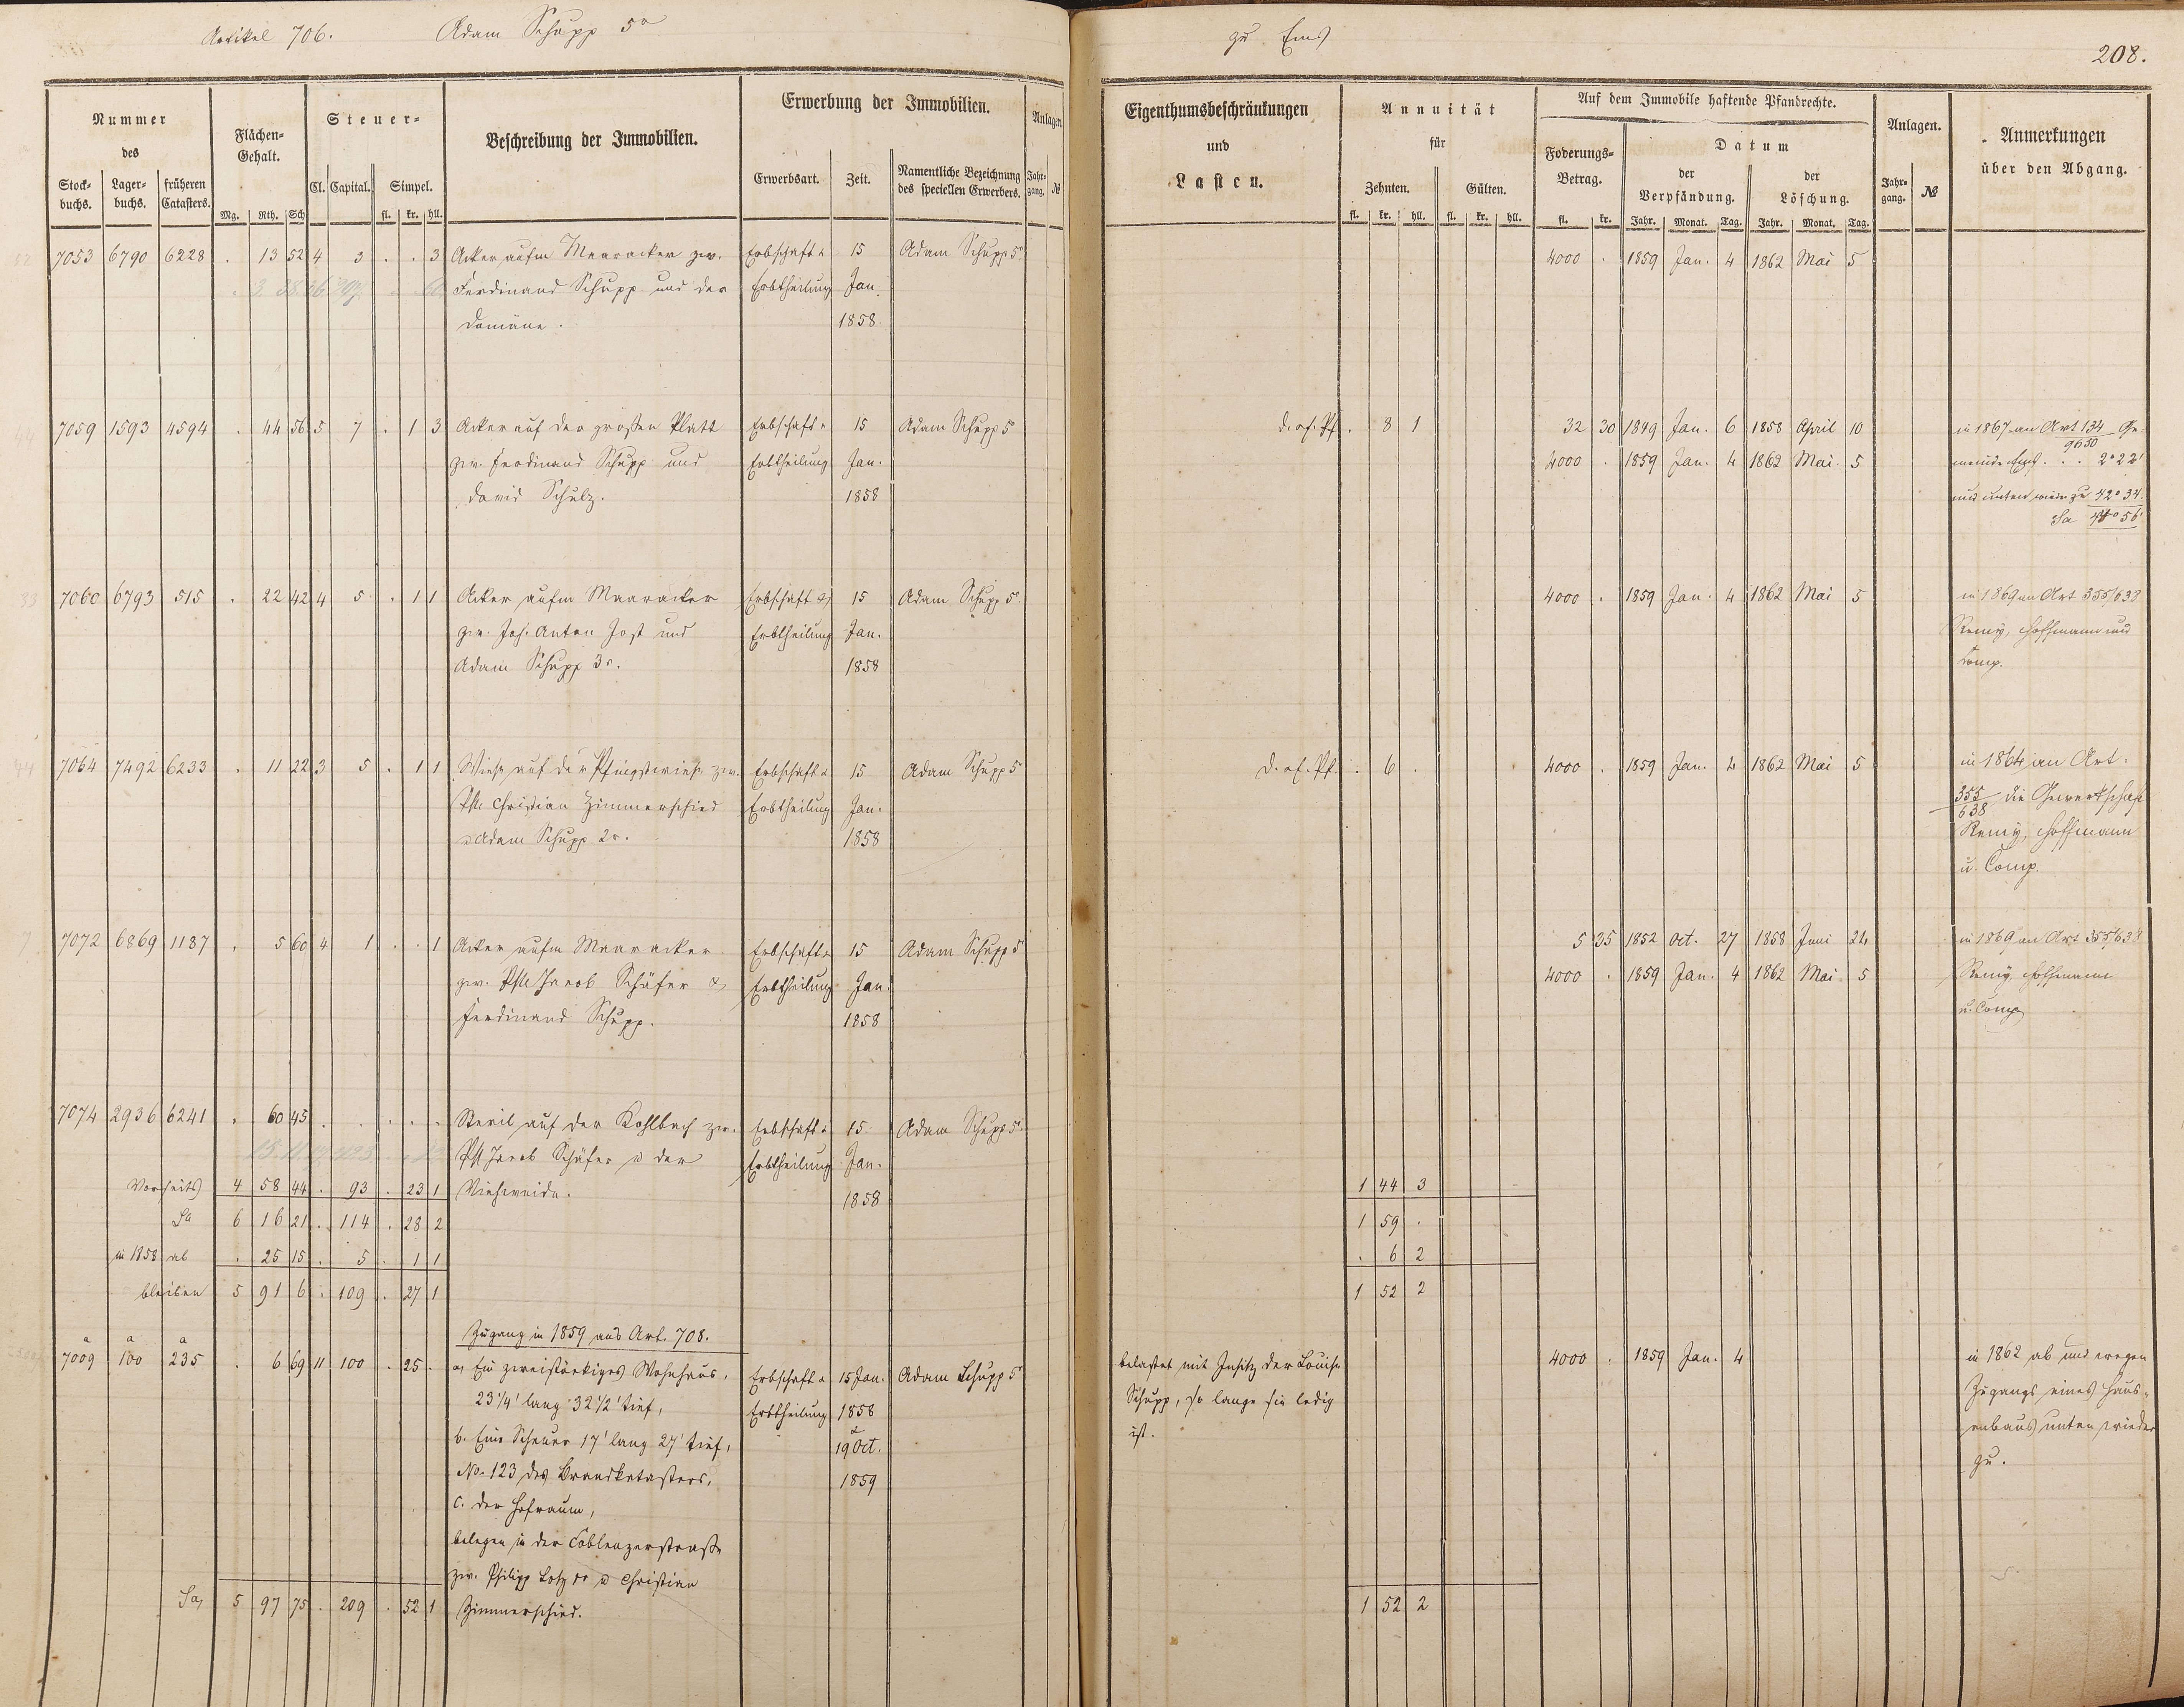 Artikel 706. Adam Schupp 5r
zu Ems
208.
Nummer des
Stock-buchs. Lager-buchs. früheren Catasters.
Flächen-Gehalt.
Mg. Rth. Sch
Steuer-
Cl. Capital. Simpel.
fl. kr. hll.
Beschreibung der Immobilien.
Erwerbung der Immobilien.
Erwerbsart. Zeit. Namentliche Bezeichnung des speciellen Erwerbers.
Anlagen.
Jahr-gang. №
Eigenthumsbeschränkungen und Lasten.
Annuität für
Zehnten. Gülten.
fl. kr. hll. fl. kr. hll.
Auf dem Immobile haftende Pfandrechte.
Foderungs-Betrag.
fl. kr.
Datum
der Verpfändung. der Löschung.
Jahr. Monat. Tag. Jahr. Monat. Tag.
Anlagen.
Jahr-gang. №
Anmerkungen über den Abgang.
7053 6790 6228 . 13 52 4 3 . . 3 Acker aufm Maaracker zw. Erbschaft u 15 Adam Schupp 5r 4000 . 1859 Jan. 4 1862 Mai 5
Ferdinand Schupp und der Erbtheilung Jan.
Domäne. 1858
7059 1593 4594 . 44 56 5 7 . 1 3 Acker auf der großen Platt Erbschaft u 15 Adam Schupp 5r d. af. Pf. . 8 1 32 30 1849 Jan. 6 1858 April 10 in 1867 an Art 134 Ge-
9650
zw. Ferdinand Schupp und Erbtheilung Jan. 4000 . 1859 Jan. 4 1862 Mai 5 meinde . . . 2° 22'
David Schulz. 1858 und unten wieder zu 42° 34'
Sa 44° 56'
7060 6793 515 . 22 42 4 5 . 1 1 Acker aufm Maaracker Erbschaft & 15 Adam Schupp 5r 4000 . 1859 Jan. 4 1862 Mai 5 in 1869 an Art 355/638
zw. Joh. Anton Jost und Erbtheilung Jan. Remy, Hoffmann und
Adam Schupp 3r. 1858 Comp.
7064 7492 6233 . 11 22 3 5 . 1 1 Wiese auf der Pfingstwiese zw. Erbschaft u 15 Adam Schupp 5r d. af. Pf. . 6 . 4000 . 1859 Jan. 4 1862 Mai 5 in 1864 an Art.
Christian Zimmerschied Erbtheilung Jan. 355/638 die Gewerkschaft
u Adam Schupp 2r. 1858 Remy, Hoffmann
u. Comp.
7072 6869 1187 . 5 60 4 1 . . 1 Acker aufm Maaracker Erbschaft u 15 Adam Schupp 5r 5 35 1852 Oct. 27 1858 Juni 24 in 1869 an Art 355/638
zw. Jacob Schäfer & Erbtheilung Jan. 4000 . 1859 Jan. 4 1862 Mai 5 Remy Hoffmann
Ferdinand Schupp. 1858 u. Comp
7074 2936 6241 . 60 45 . . . . . Steril auf der Kohlbach zw. Erbschaft u 15 Adam Schupp 5r
Jacob Schäfer u der Erbtheilung Jan.
Vorseits 4 58 44 . 93 . 23 1 Viehweide. 1858 1 44 3
Sa 6 16 21 . 114 . 28 2 1 59 .
in 1858 ab . 25 15 . 5 . 1 1 . 6 2
bleiben 5 91 6 . 109 . 27 1 1 52 2
Zugang in 1859 aus Art. 708.
a a a
7009 100 235 . 6 69 11 100 . 25 . a, Ein zweistöckiges Wohnhaus, Erbschaft u 15 Jan. Adam Schupp 5r belastet mit Insitz der Louise 4000 . 1859 Jan. 4 in 1862 ab und wegen
23 1/4' lang 32 1/2' tief, Erbtheilung 1858 Schupp, so lange sie ledig Zugangs eines Haus-
b. Eine Scheuer 17' lang 27' tief, u 19 Oct. ist. anbaus unten wieder
No. 123 des Brandkatasters, 1859 zu.
c. der Hofraum,
belegen in der Coblenzerstraße
zw. Philipp Lotz u Christian
Sa, 5 97 75 . 209 . 52 1 Zimmerschied. 1 52 2